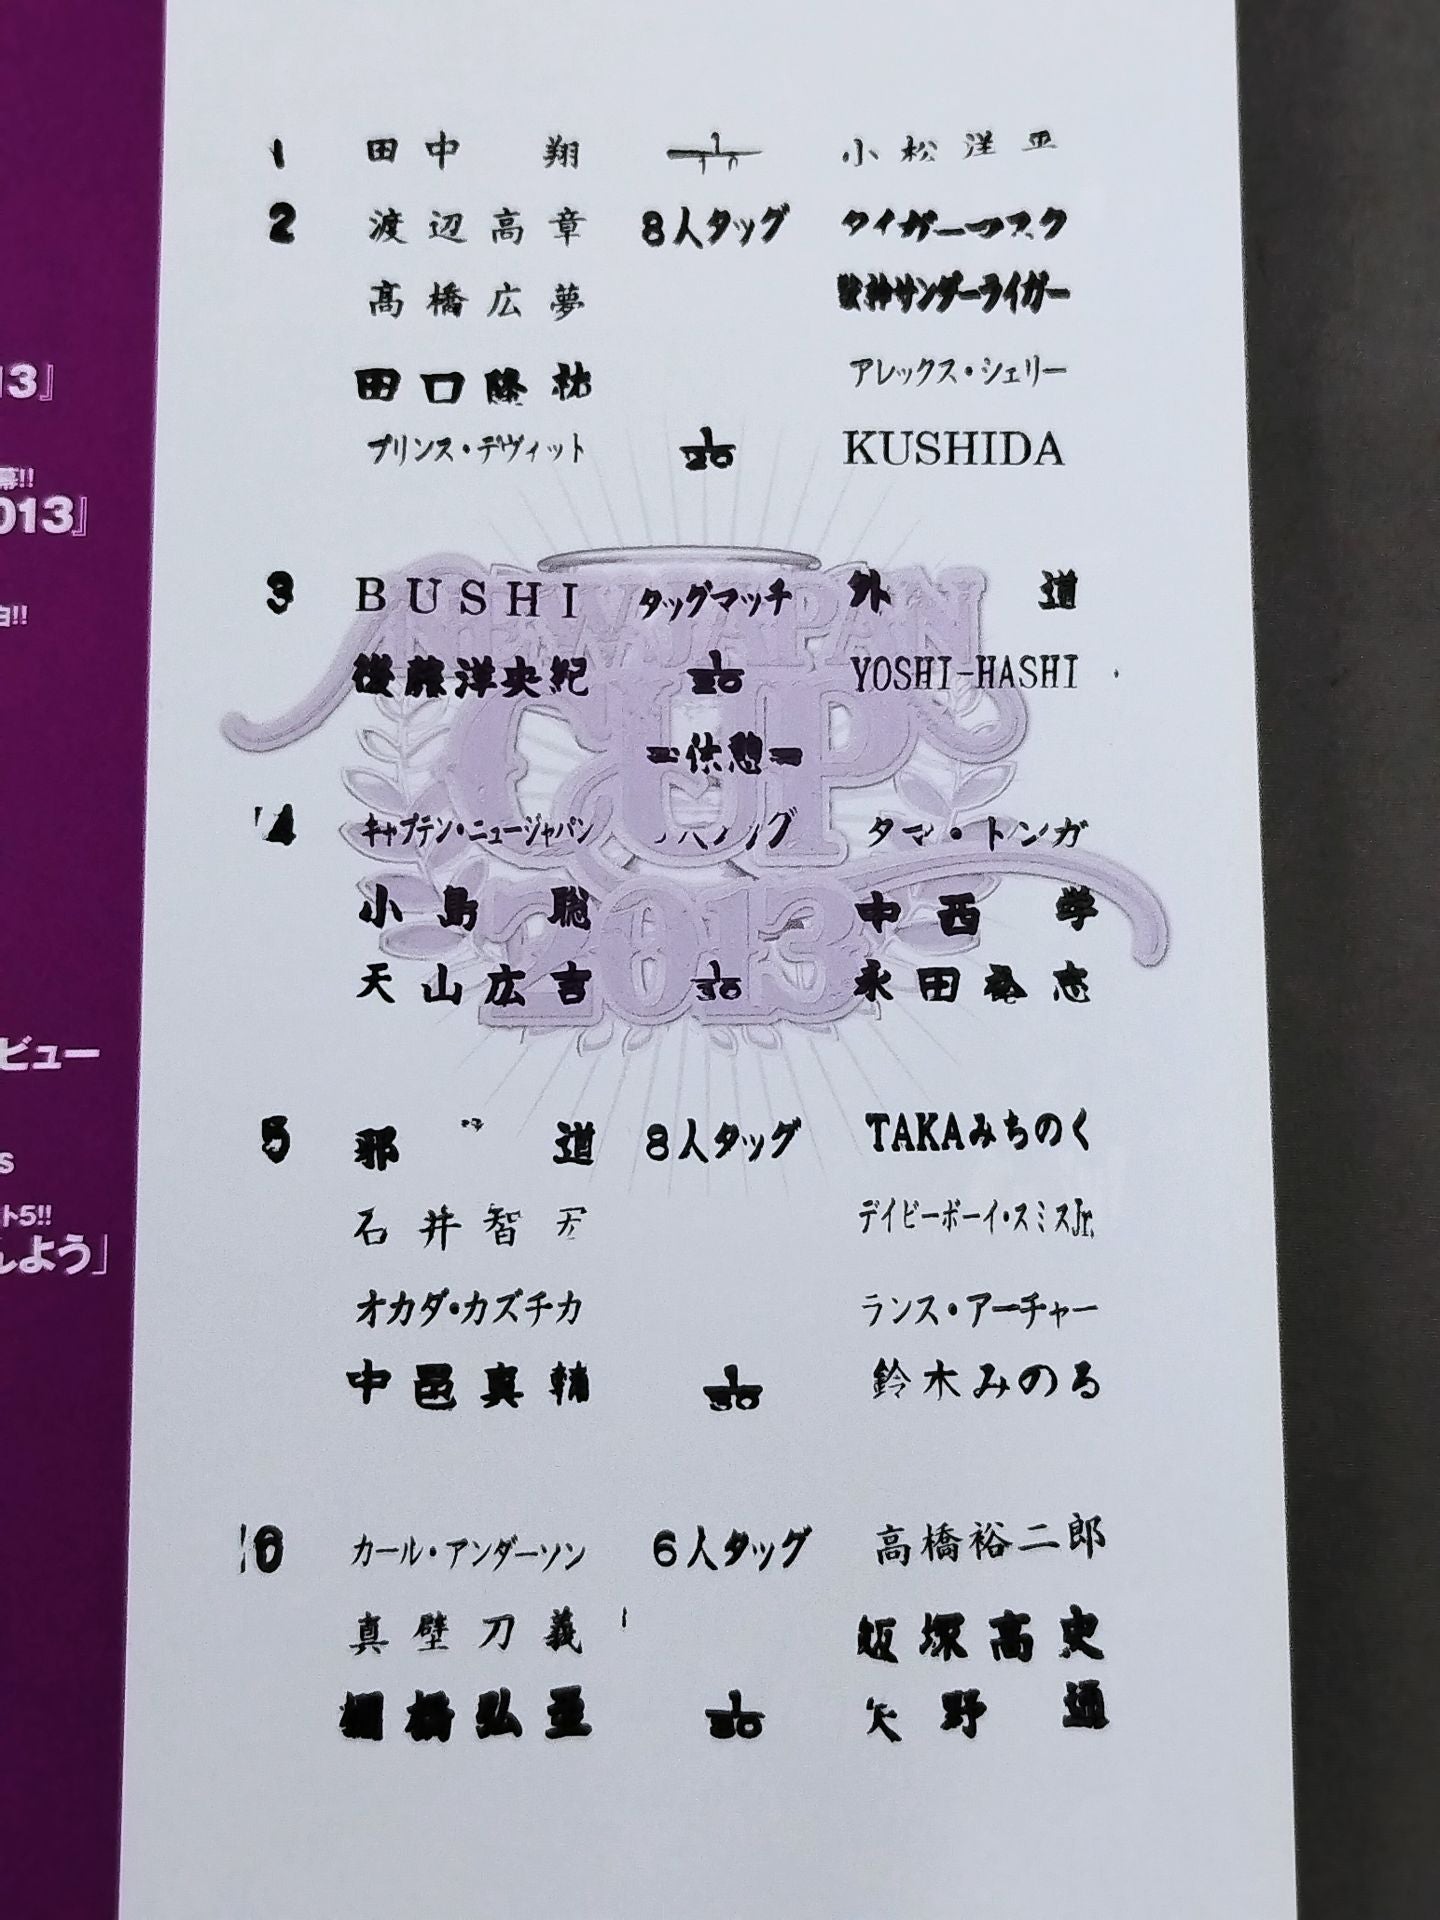 13』
幕!!
013』
白!!
ビュー
s
ト5!!
んよう」
1 田中 翔 1/10 小松洋平
2 渡辺高章 8人タッグ タイガーマスク
髙橋広夢 獣神サンダーライガー
田口隆祐 アレックス・シェリー
プリンス・デヴィット 1/20 KUSHIDA
3 BUSHI タッグマッチ 外 道
後藤洋央紀 1/20 YOSHI-HASHI
=休憩=
4 キャプテン・ニュージャパン 人タッグ タマ・トンガ
小島 聡 中西 学
天山広吉 1/30 永田裕志
5 邪 道 8人タッグ TAKAみちのく
石井智宏 デイビーボーイ・スミスJr.
オカダ・カズチカ ランス・アーチャー
中邑真輔 1/30 鈴木みのる
6 カール・アンダーソン 6人タッグ 高橋裕二郎
真壁刀義 飯塚高史
棚橋弘至 1/30 矢野 通
NEW JAPAN
CUP
2013